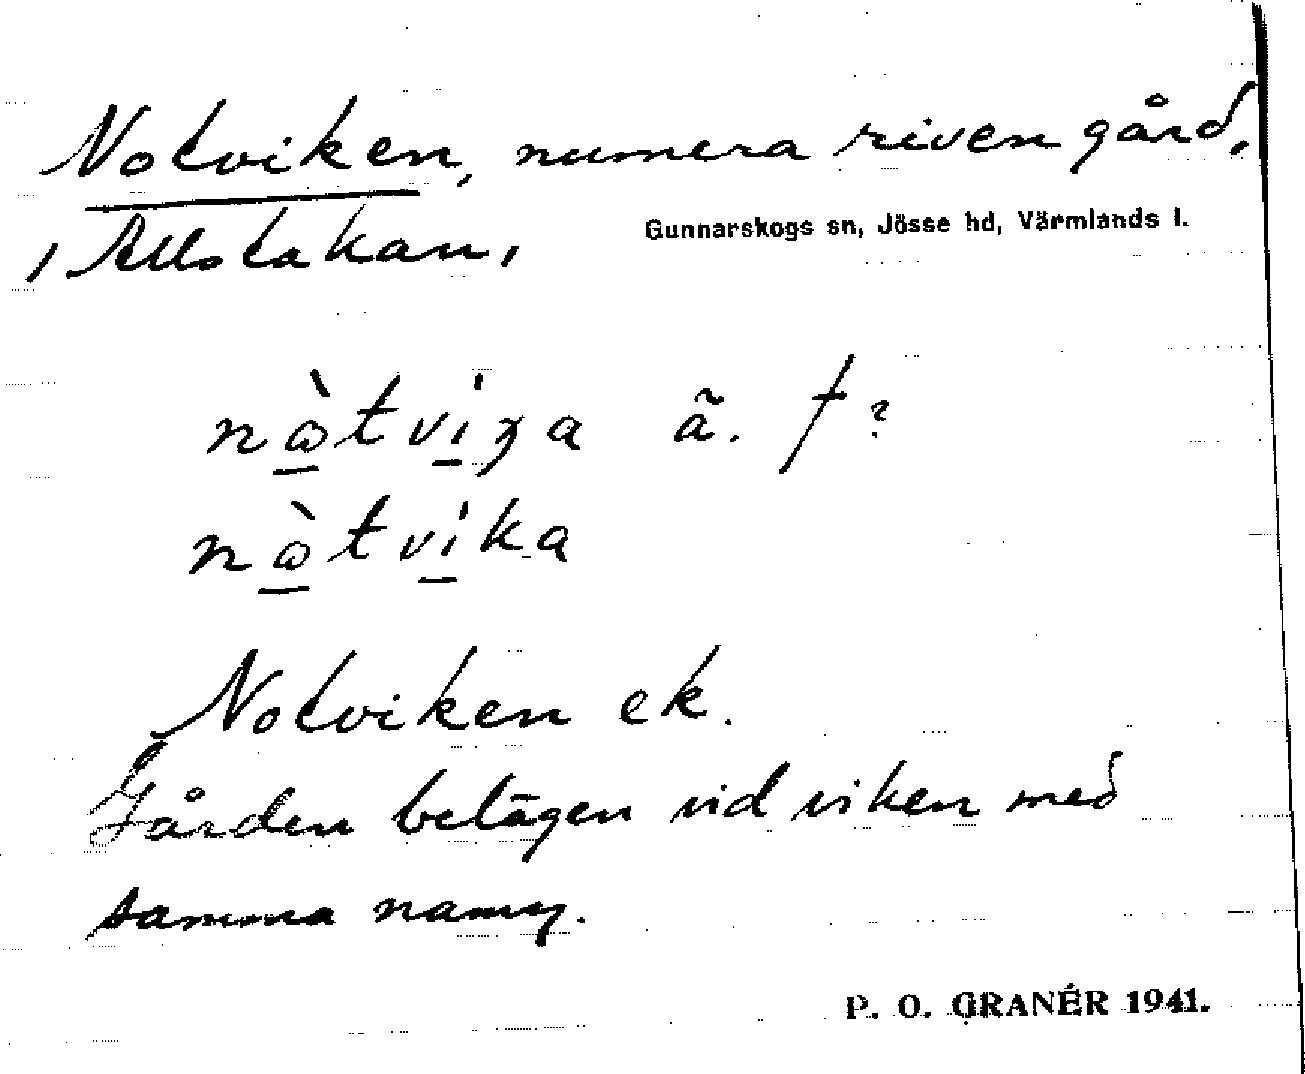 Notviken, numera riven gård,
i Allstakan,
Gunnarskogs sn, Jösse hd, Värmlands l.
ã. †?
Notviken ek.
Gården belägen vid viken med
samma namn.
P. O. GRANÉR 1941.